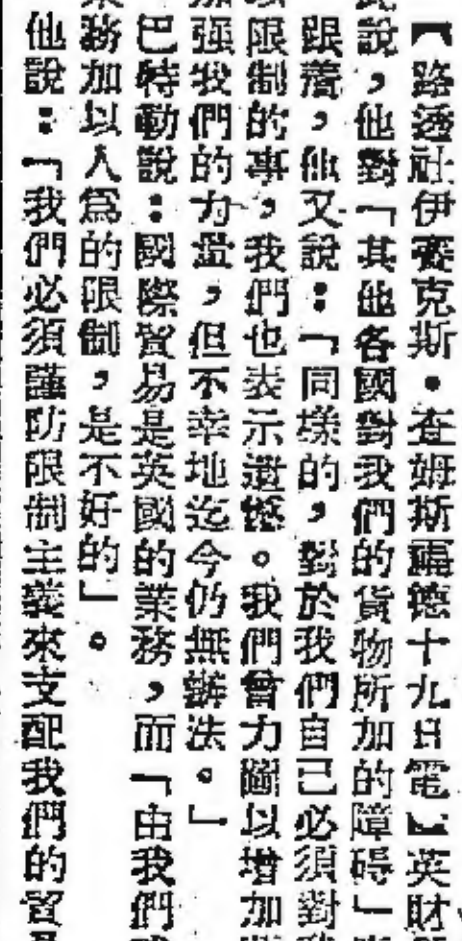 【路透社伊塞克斯•查姆斯福德十九日電】英財
說，他對「其他各國對我們的貨物所加的障碍」
跟着，他又說：「同樣的，對於我們自己必須對
限制的事，我們也表示遺憾。我們曾力圖以增加
加强我們的力量，但不幸地迄今仍無辦法。」
巴特勳說：國際貿易是英國的業務，而「由我們
業務加以人爲的限制，是不好的」。
他說：「我們必須謹防限制主義來支配我們的貿易